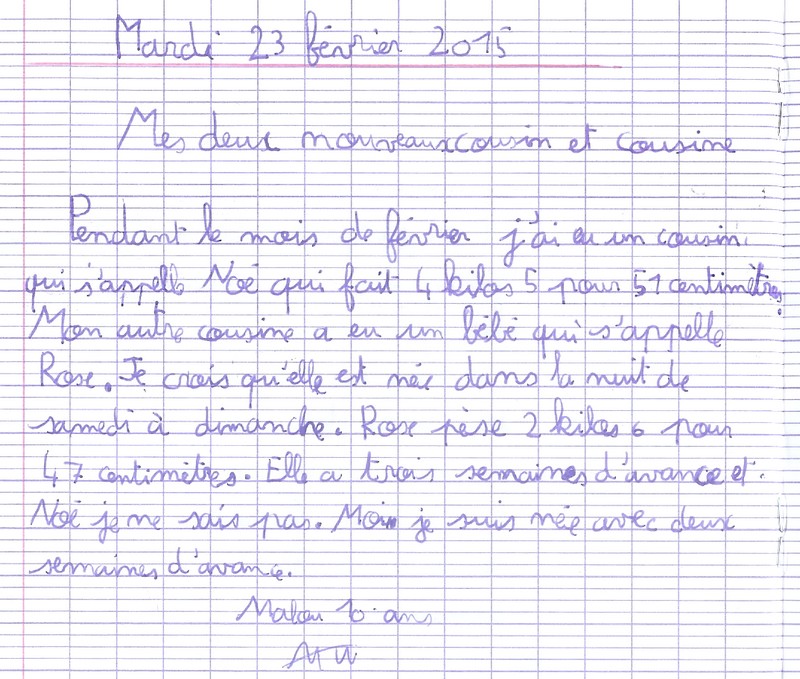 Mardi 23 février 2015
Mes deux nouveaux cousin et cousine
Pendant le mois de février j'ai eu un cousin
qui s'appelle Noé qui fait 4 kilos 5 pour 51 centimètres.
Mon autre cousine a eu un bébé qui s'appelle
Rose. Je crois qu'elle est née dans la nuit de
samedi à dimanche. Rose pèse 2 kilos 6 pour
47 centimètres. Elle a trois semaines d'avance et
Noé je ne sais pas. Moi je suis née avec deux
semaines d'avance.
Malou 10 ans